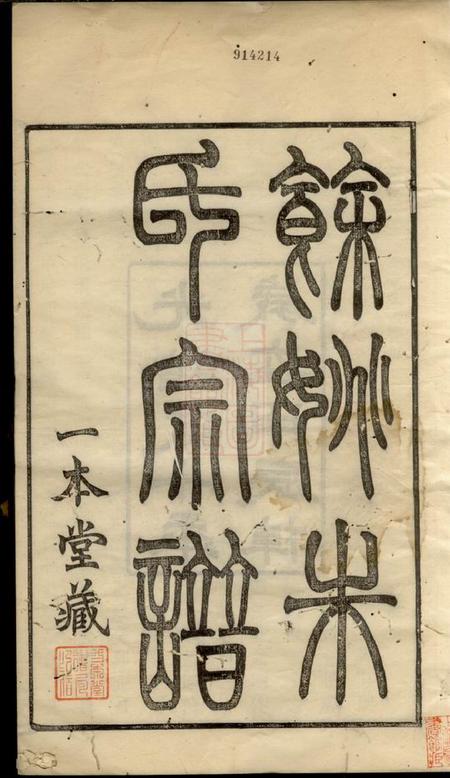 914214
餘姚朱
氏宗譜
一本堂藏